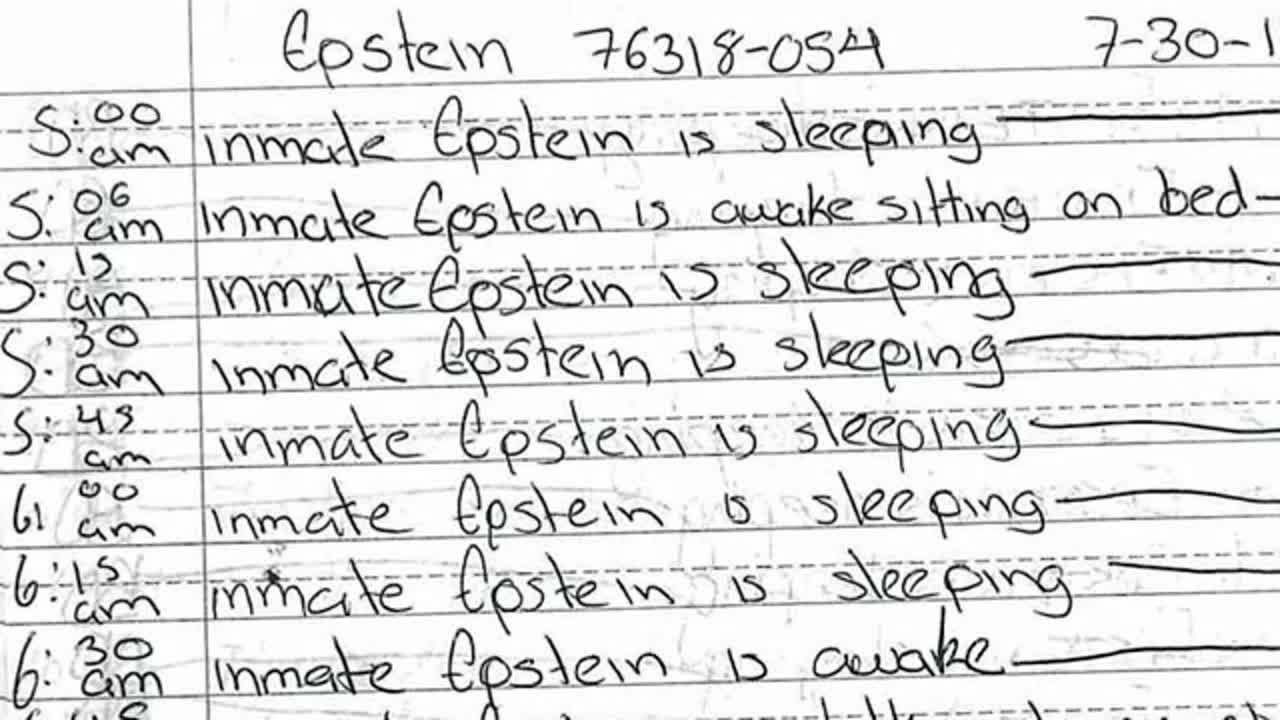 Epstein 76318-054 7-30-1
5:00 am inmate Epstein is sleeping
5:06 am inmate Epstein is awake sitting on bed-
5:15 am inmate Epstein is sleeping
5:30 am inmate Epstein is sleeping
5:45 am inmate Epstein is sleeping
6:00 am inmate Epstein is sleeping
6:15 am inmate Epstein is sleeping
6:30 am inmate Epstein is awake